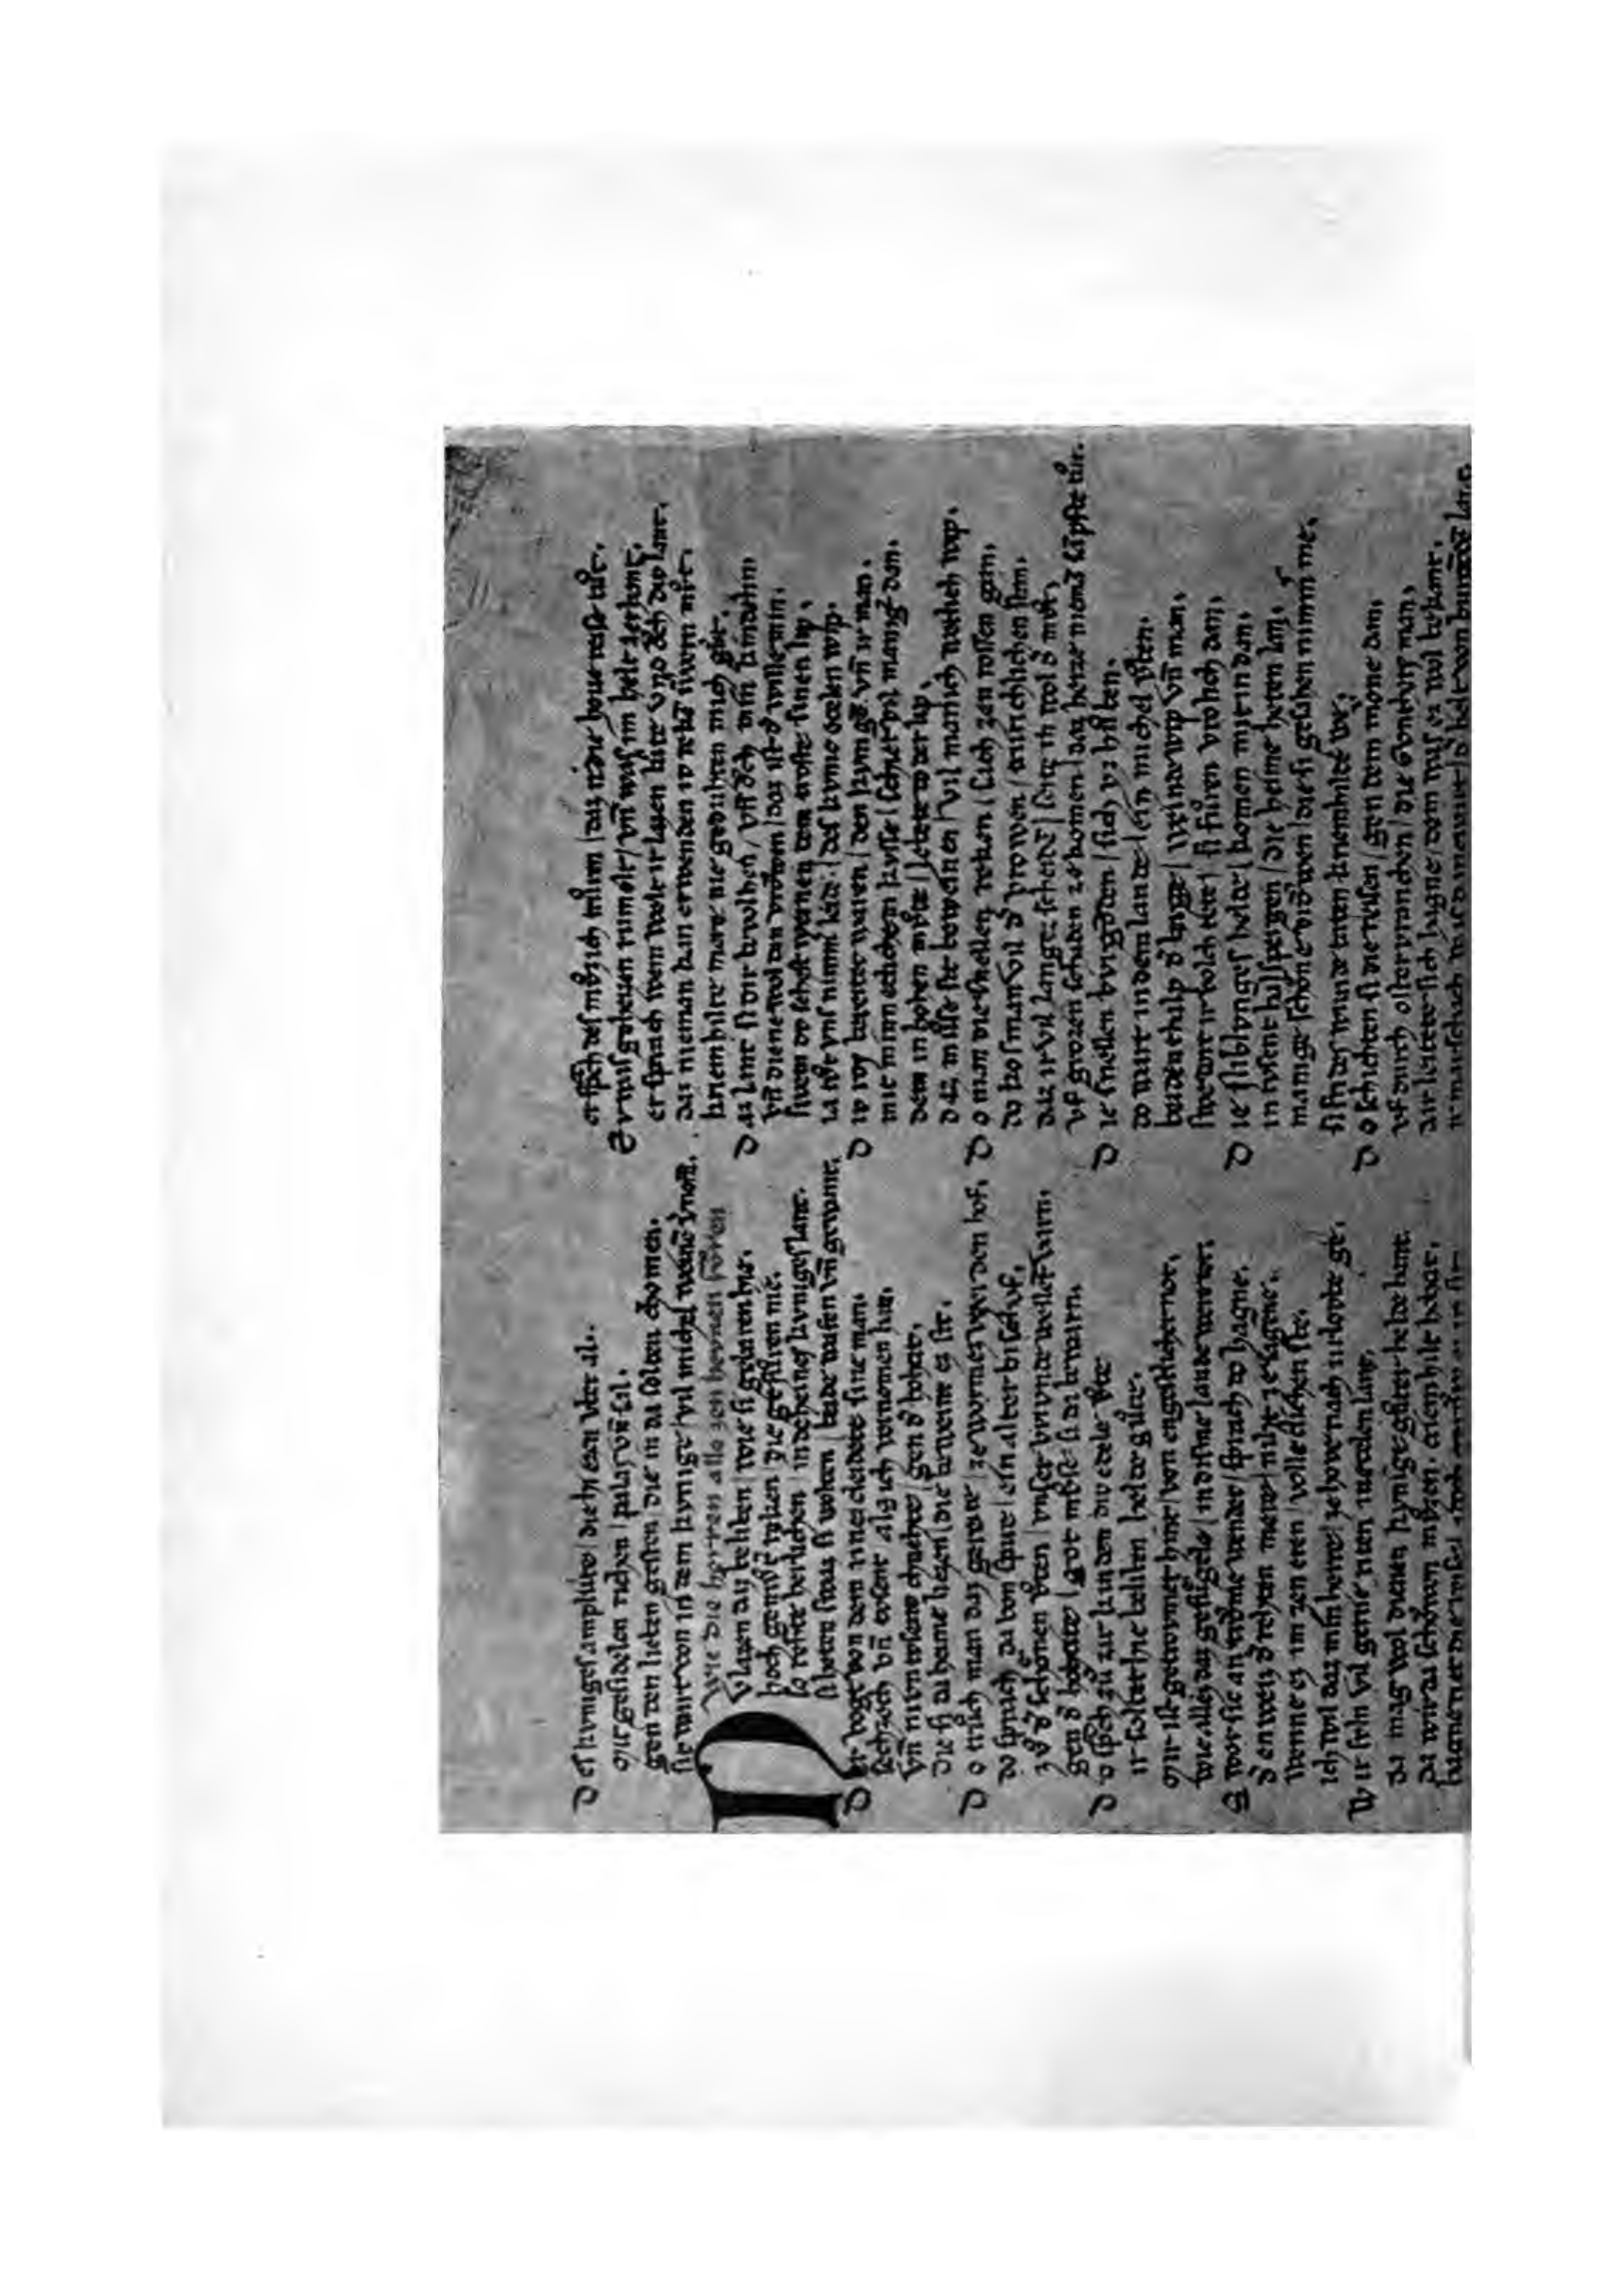 D es kuniges amplúte / die hiezan vber al.
mit gesidelen richen / palas vñ sal.
gen den lieben gesten / die in da solten chomen.
sit wart von in dem kunige / vil michel weinē v'nom.
Wie die herren alle zen hevnen fvren
N v lazen daz beliben / wie si gebaren hie.
hoch gemvt' reken / die gefvren nie.
so rehte herlichen / in decheines kuniges lant.
si heten swaz si wolten / beide wafen vñ gewant.
D er voget von dem rine / cleidete sine man.
sehzech vñ tvsent / als ich v'nomen han.
vñ nivn tvsent chnehte / gen d' hohzit.
die si da heime liezen / die beweinten ez sit.
D o trůch man daz gereite / ze wormez vber den hof.
do sprach da von spire / ein alter bischof.
zů d' schonen vten / vnser vrivnde wellent varn.
gen d' hohzite / got mvze si da bewarn.
D o sp'ch zů zir kinden div edele vte
ir soltet hie beliben helde gůte.
mir ist getrovmet hinte / von engestlicher not.
wie allez daz gefugele / in disme lande were tot.
S wer sich an trovme wendet / sprach do hagne.
d' enweiz d' rehten mere / niht ze sagene.
wenne ez im zen eren / volleclichen ste.
ich wil daz min herre / ze hove nach urlovbe ge.
W ir svln vil gerne riten in etzelen lant.
da mag wol dienen kunige / gůter helde hant
da wir da schowen mvzen / criemhilde hohzit.
er sp'ch des mvz ich mich
S wi groz ir
er sprach
daz nieman kan erwenden
kriemhilte mere nie gedvhten mich gůt.
D az lant si dir bevolhen / vñ ovch min kindelin
vñ diene wol den vrowen / daz ist d' wille min.
swen dv sehest weinen dem troste sinen lip.
ia tůt vns nimm' leide / des kunic etzelen wip.
D iv ros bereitet waren / den kunigē vñ ir man.
mit minneclichem kusse / schiet vil manig' dan.
dem in hohem mvte / lebete do der lip.
daz mvse sit beweinen / vil manich wetlich wip.
D o man die snellen reken / sach zen rossen gan.
do kos man vil d' vrowen / trurichlichen stan.
daz ir vil langez scheiden / seit in wol d' mvt.
vf grozen schaden ze komen / daz herze niemā sāpfte tůt.
D ie snellen bvrgōden / sich vz hůben.
do wart in dem lande / ein michel vben.
beidenthalp d' berge / weinde wip vñ man.
swie dort ir volch tete / si fůren vrolich dan.
D ie niblvnges helde / komen mit in dan.
in tvsent halspergen / die heime heten lan.
manige schone vrowen / die si gesahen nimm' me.
D o schichten si die reise / gen dem mone dan.
vf durch ostervranchen / die Gvntheres man.
dar leitete sich hagne dem was ez wol bekant.
ir marschach was danewart / d' helt von burgōdē lant.